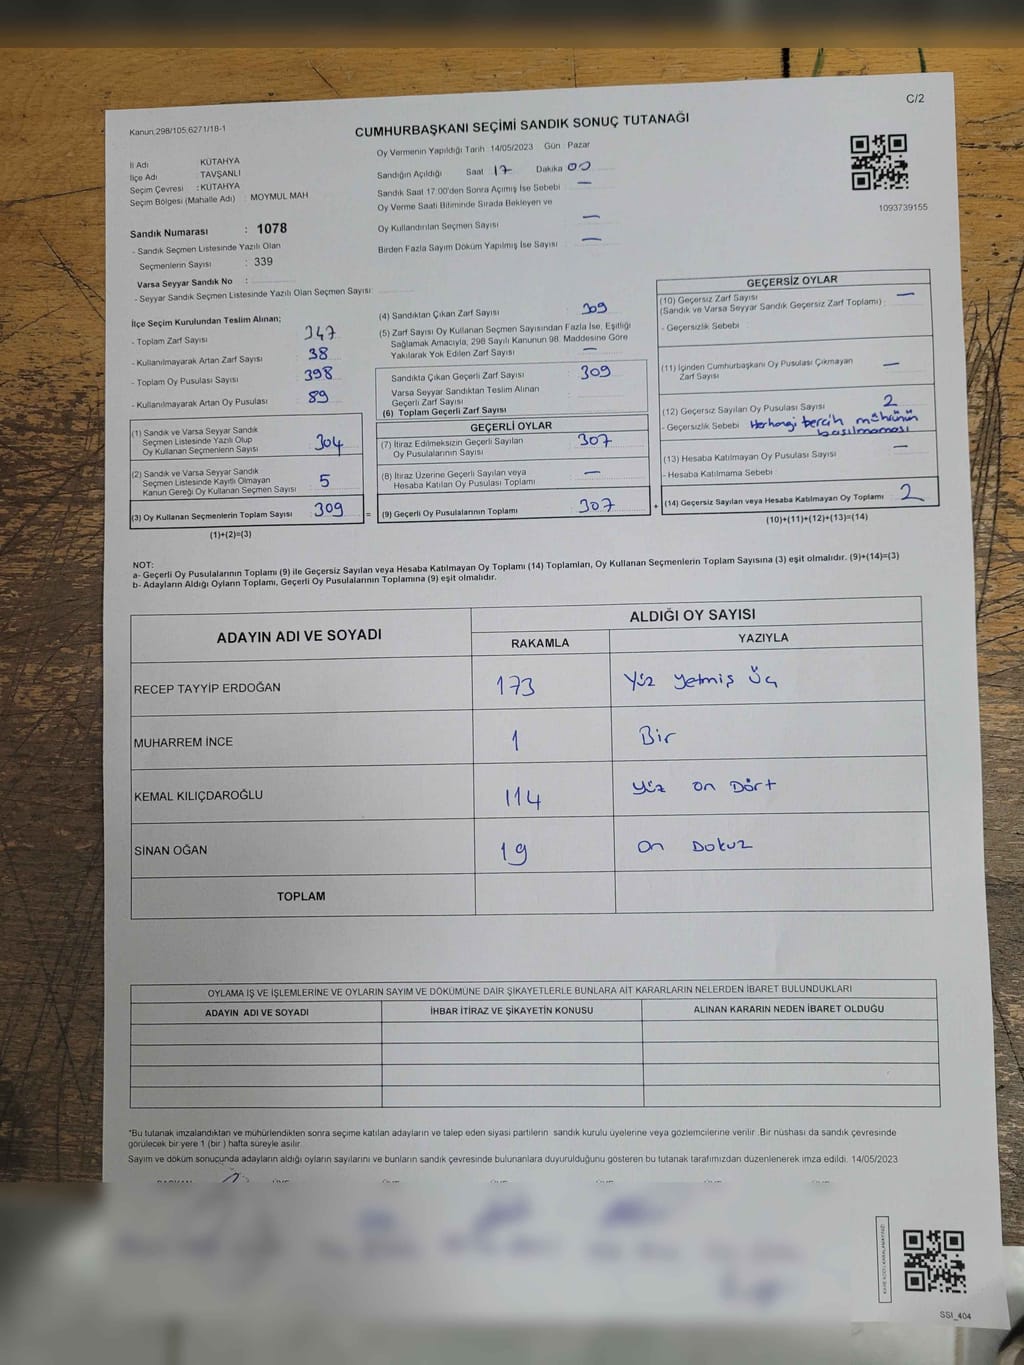 C/2
Kanun,298/105,6271/18-1
CUMHURBAŞKANI SEÇİMİ SANDIK SONUÇ TUTANAĞI
İl Adı : KÜTAHYA
İlçe Adı : TAVŞANLI
Seçim Çevresi : KÜTAHYA
Seçim Bölgesi (Mahalle Adı) : MOYMUL MAH
Oy Vermenin Yapıldığı Tarih : 14/05/2023 Gün : Pazar
Sandığın Açıldığı Saat 17 Dakika 00
Sandık Saat 17:00'den Sonra Açımış İse Sebebi —
Oy Verme Saati Bitiminde Sırada Bekleyen ve
Oy Kullandırılan Seçmen Sayısı —
Birden Fazla Sayım Döküm Yapılmış İse Sayısı —
1093739155
Sandık Numarası : 1078
- Sandık Seçmen Listesinde Yazılı Olan
Seçmenlerin Sayısı : 339
Varsa Seyyar Sandık No :
- Seyyar Sandık Seçmen Listesinde Yazılı Olan Seçmen Sayısı:
İlçe Seçim Kurulundan Teslim Alınan;
- Toplam Zarf Sayısı 347
- Kullanılmayarak Artan Zarf Sayısı 38
- Toplam Oy Pusulası Sayısı 398
- Kullanılmayarak Artan Oy Pusulası 89
(1) Sandık ve Varsa Seyyar Sandık
Seçmen Listesinde Yazılı Olup
Oy Kullanan Seçmenlerin Sayısı 304
(2) Sandık ve Varsa Seyyar Sandık
Seçmen Listesinde Kayıtlı Olmayan
Kanun Gereği Oy Kullanan Seçmen Sayısı 5
(3) Oy Kullanan Seçmenlerin Toplam Sayısı 309
(1)+(2)=(3)
(4) Sandıktan Çıkan Zarf Sayısı 309
(5) Zarf Sayısı Oy Kullanan Seçmen Sayısından Fazla İse, Eşitliği
Sağlamak Amacıyla, 298 Sayılı Kanunun 98. Maddesine Göre
Yakılarak Yok Edilen Zarf Sayısı —
Sandıkta Çıkan Geçerli Zarf Sayısı 309
Varsa Seyyar Sandıktan Teslim Alınan
Geçerli Zarf Sayısı
(6) Toplam Geçerli Zarf Sayısı
GEÇERLİ OYLAR
(7) İtiraz Edilmeksizin Geçerli Sayılan
Oy Pusulalarının Sayısı 307
(8) İtiraz Üzerine Geçerli Sayılan veya
Hesaba Katılan Oy Pusulası Toplamı —
= (9) Geçerli Oy Pusulalarının Toplamı 307
GEÇERSİZ OYLAR
(10) Geçersiz Zarf Sayısı —
(Sandık ve Varsa Seyyar Sandık Geçersiz Zarf Toplamı) :
- Geçersizlik Sebebi :
(11) İçinden Cumhurbaşkanı Oy Pusulası Çıkmayan
Zarf Sayısı —
(12) Geçersiz Sayılan Oy Pusulası Sayısı 2
- Geçersizlik Sebebi Herhangi tercih mührünün
basılmaması
(13) Hesaba Katılmayan Oy Pusulası Sayısı —
- Hesaba Katılmama Sebebi
+ (14) Geçersiz Sayılan veya Hesaba Katılmayan Oy Toplamı 2
(10)+(11)+(12)+(13)=(14)
NOT:
a- Geçerli Oy Pusulalarının Toplamı (9) ile Geçersiz Sayılan veya Hesaba Katılmayan Oy Toplamı (14) Toplamları, Oy Kullanan Seçmenlerin Toplam Sayısına (3) eşit olmalıdır. (9)+(14)=(3)
b- Adayların Aldığı Oyların Toplamı, Geçerli Oy Pusulalarının Toplamına (9) eşit olmalıdır.
ADAYIN ADI VE SOYADI ALDIĞI OY SAYISI
RAKAMLA YAZIYLA
RECEP TAYYİP ERDOĞAN 173 Yüz Yetmiş Üç
MUHARREM İNCE 1 Bir
KEMAL KILIÇDAROĞLU 114 Yüz on Dört
SİNAN OĞAN 19 On Dokuz
TOPLAM
OYLAMA İŞ VE İŞLEMLERİNE VE OYLARIN SAYIM VE DÖKÜMÜNE DAİR ŞİKAYETLERLE BUNLARA AİT KARARLARIN NELERDEN İBARET BULUNDUKLARI
ADAYIN ADI VE SOYADI İHBAR İTİRAZ VE ŞİKAYETİN KONUSU ALINAN KARARIN NEDEN İBARET OLDUĞU
*Bu tutanak imzalandıktan ve mühürlendikten sonra seçime katılan adayların ve talep eden siyasi partilerin sandık kurulu üyelerine veya gözlemcilerine verilir .Bir nüshası da sandık çevresinde
görülecek bir yere 1 (bir ) hafta süreyle asılır.
Sayım ve döküm sonucunda adayların aldığı oyların sayılarını ve bunların sandık çevresinde bulunanlara duyurulduğunu gösteren bu tutanak tarafımızdan düzenlenerek imza edildi. 14/05/2023
SSI_404